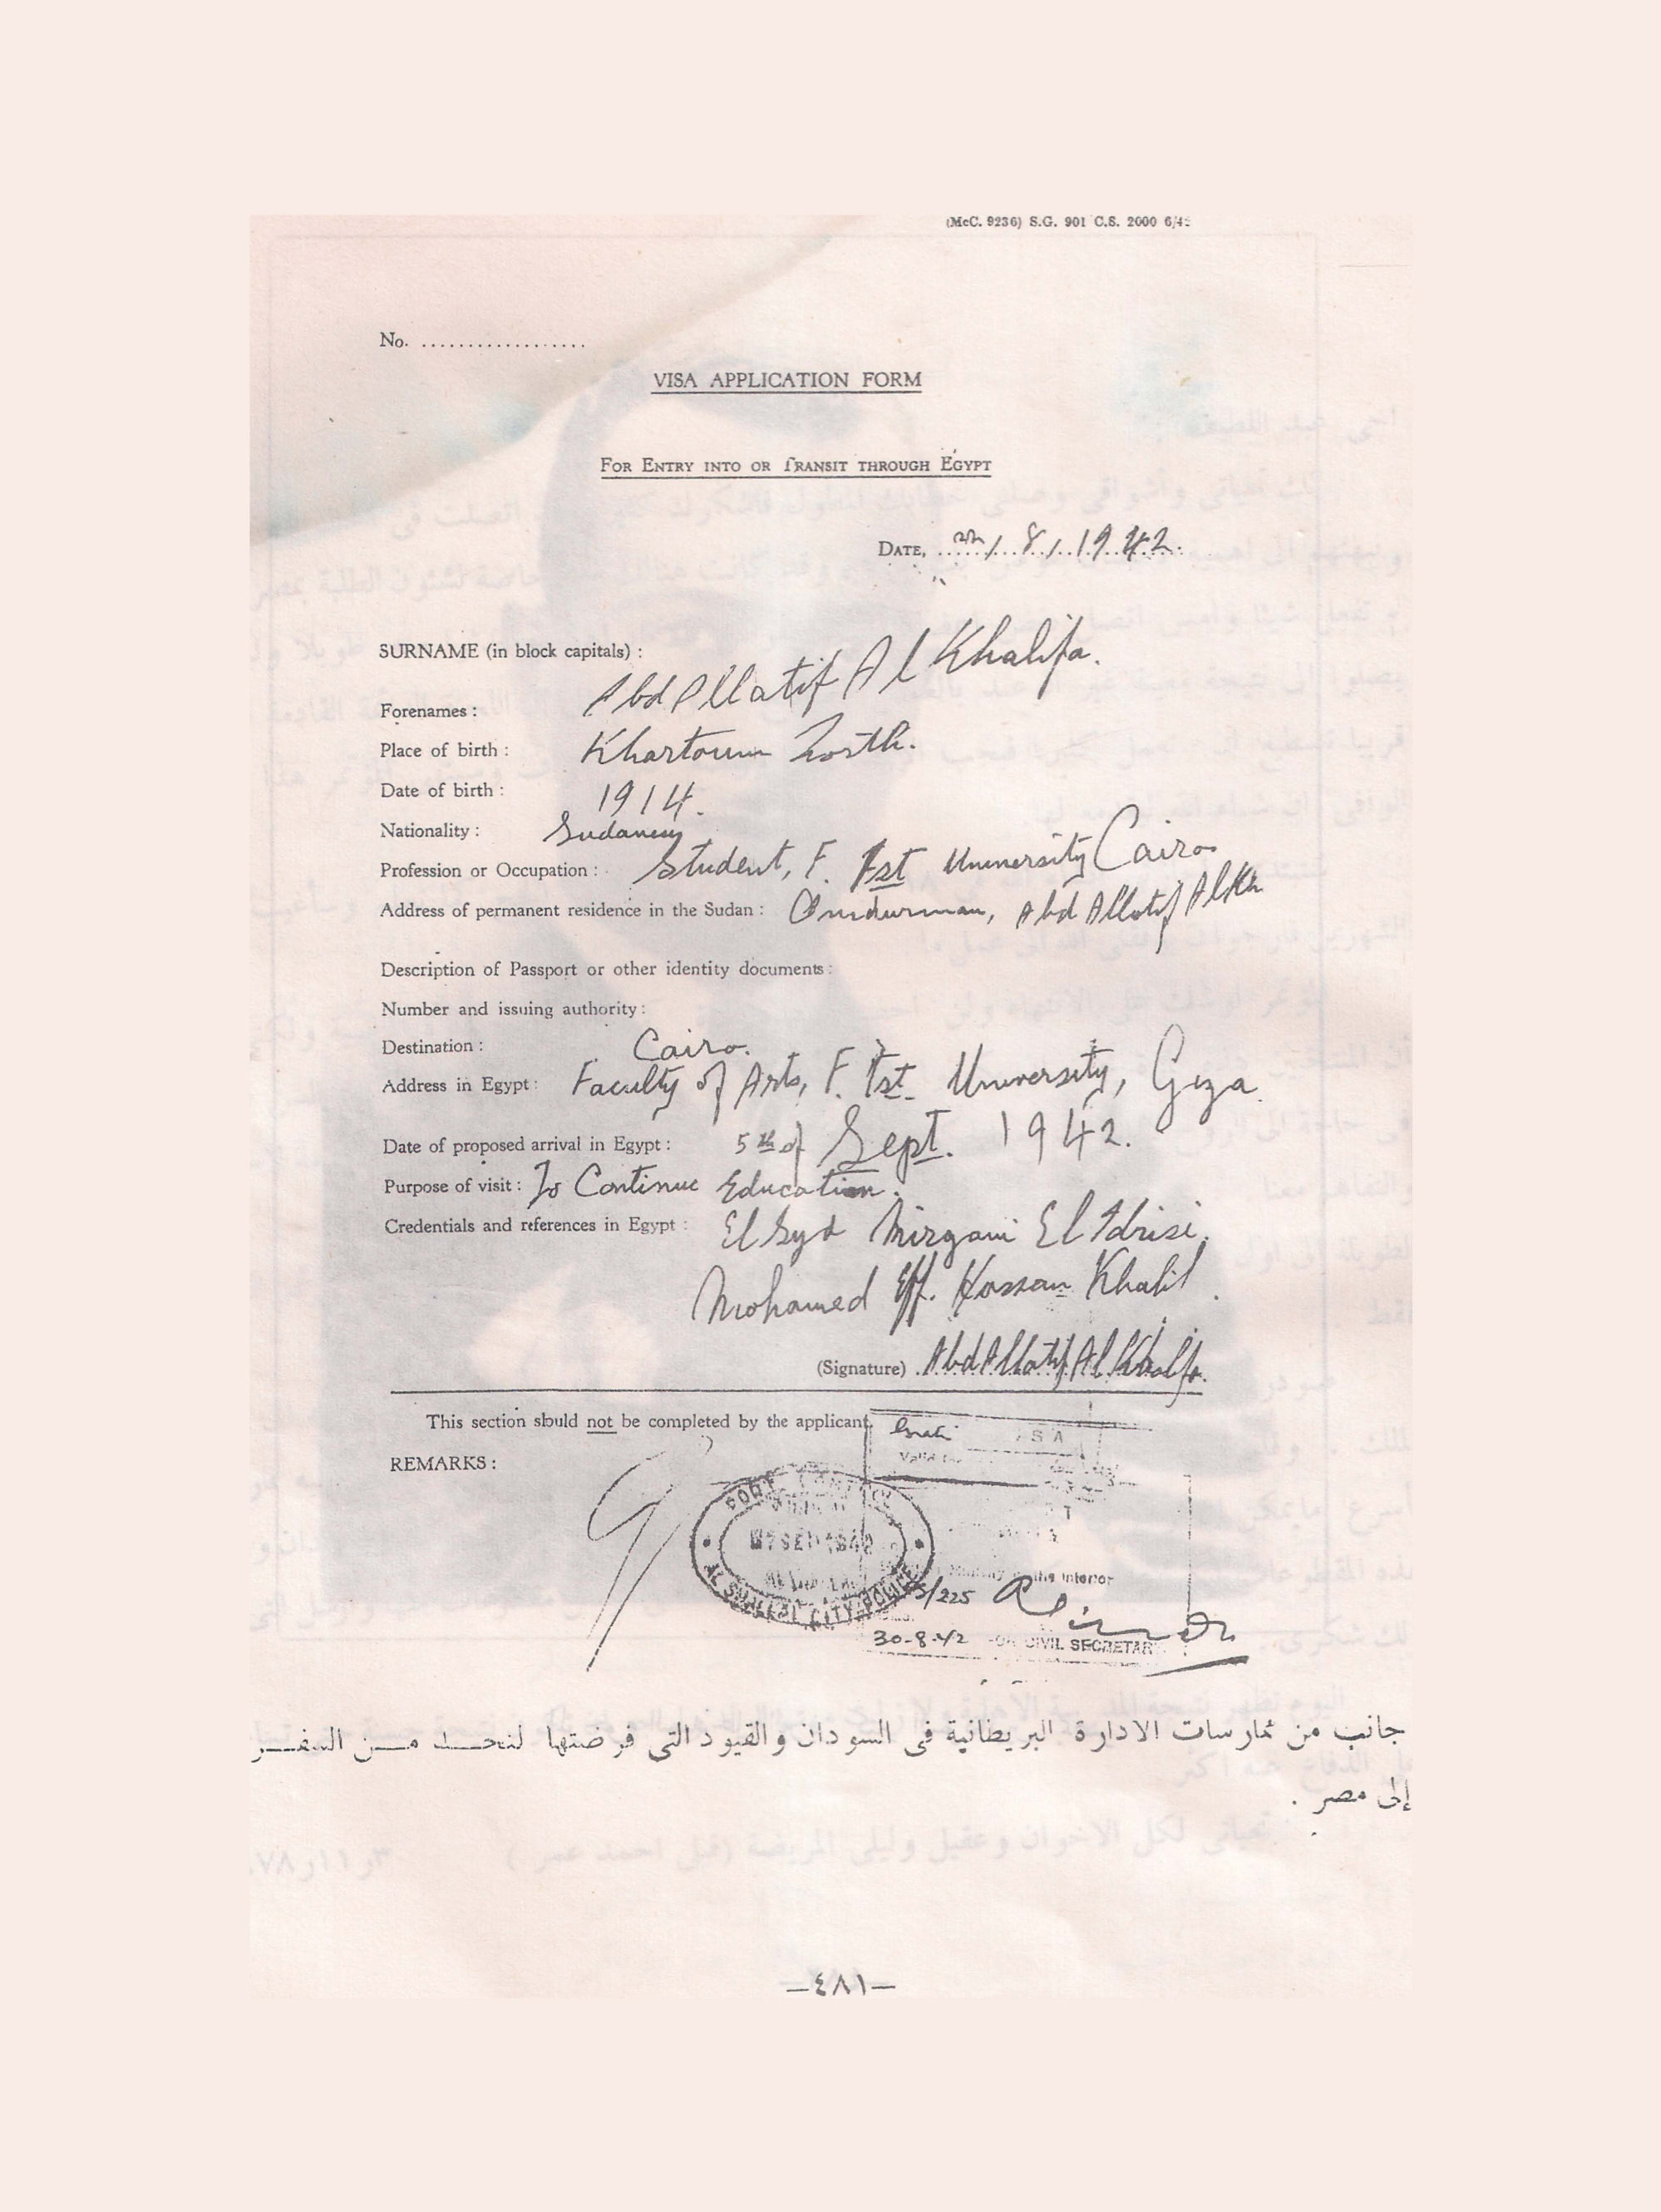 (McC. 9236) S.G. 901 C.S. 2000 6/45
No. ..................
VISA APPLICATION FORM
FOR ENTRY INTO OR TRANSIT THROUGH EGYPT
DATE, 22/8/1942.
SURNAME (in block capitals) :
Forenames : Abd Allatif Al Khalifa.
Place of birth : Khartoum North.
Date of birth : 1914.
Nationality : Sudanese
Profession or Occupation : Student, F. 1st University Cairo
Address of permanent residence in the Sudan : Omdurman, Abd Allatif Alkh
Description of Passport or other identity documents :
Number and issuing authority :
Destination : Cairo.
Address in Egypt : Faculty of Arts, F. 1st. University, Giza
Date of proposed arrival in Egypt : 5th of Sept. 1942.
Purpose of visit : To Continue Education.
Credentials and references in Egypt : El Syd Mirgani El Idrisi.
Mohamed Eff. Hassan Khalil.
(Signature) Abd Allatif Al Khalifa.
This section should not be completed by the applicant.
REMARKS :
the Interior
/225
30-8-42 CIVIL SECRETARY
جانب من ممارسات الادارة البريطانية فى السودان والقيود التى فرضتها لتحد من السفر
إلى مصر .
—٤٨١—